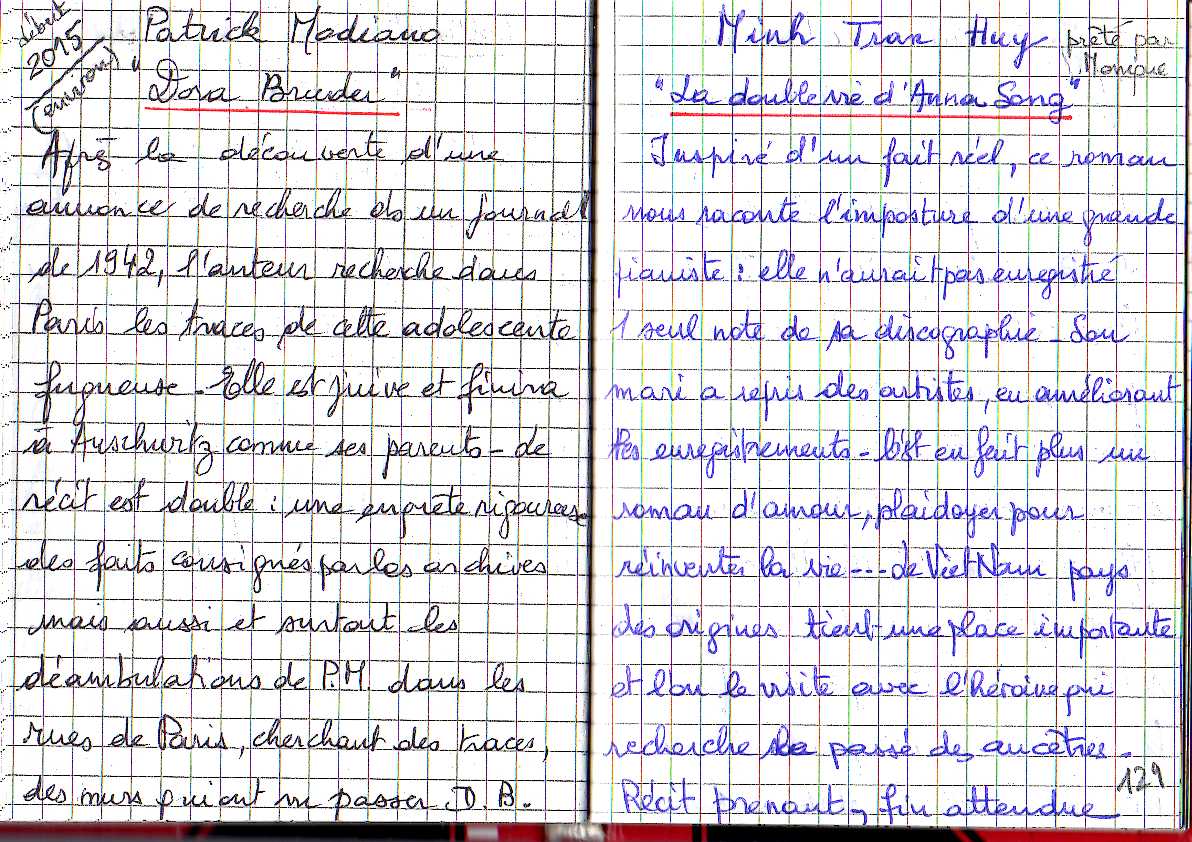 début
2015
(environ)
Patrick Modiano
"Dora Bruder"
Après la découverte d'une
annonce de recherche ds un journal
de 1942, l'auteur recherche dans
Paris les traces de cette adolescente
fugueuse - Elle est juive et finira
à Auschwitz comme ses parents - Le
récit est double : une enquête rigoureuse
des faits consignés par les archives
mais aussi et surtout les
déambulations de P.M. dans les
rues de Paris, cherchant des traces,
des murs qui ont vu passer D. B.
Minh Tran Huy
prêté par
Monique
"La double vie d'Anna Song"
Inspiré d'un fait réel, ce roman
nous raconte l'imposture d'une grande
pianiste : elle n'aurait pas enregistré
1 seul note de sa discographie - Son
mari a repris des artistes, en améliorant
les enregistrements - C'est en fait plus un
roman d'amour, plaidoyer pour
réinventer la vie --- Le Viet Nam pays
des origines tient une place importante
et l'on le visite avec l'héroïne qui
recherche le passé des ancêtres -
Récit prenant, fin attendue
129